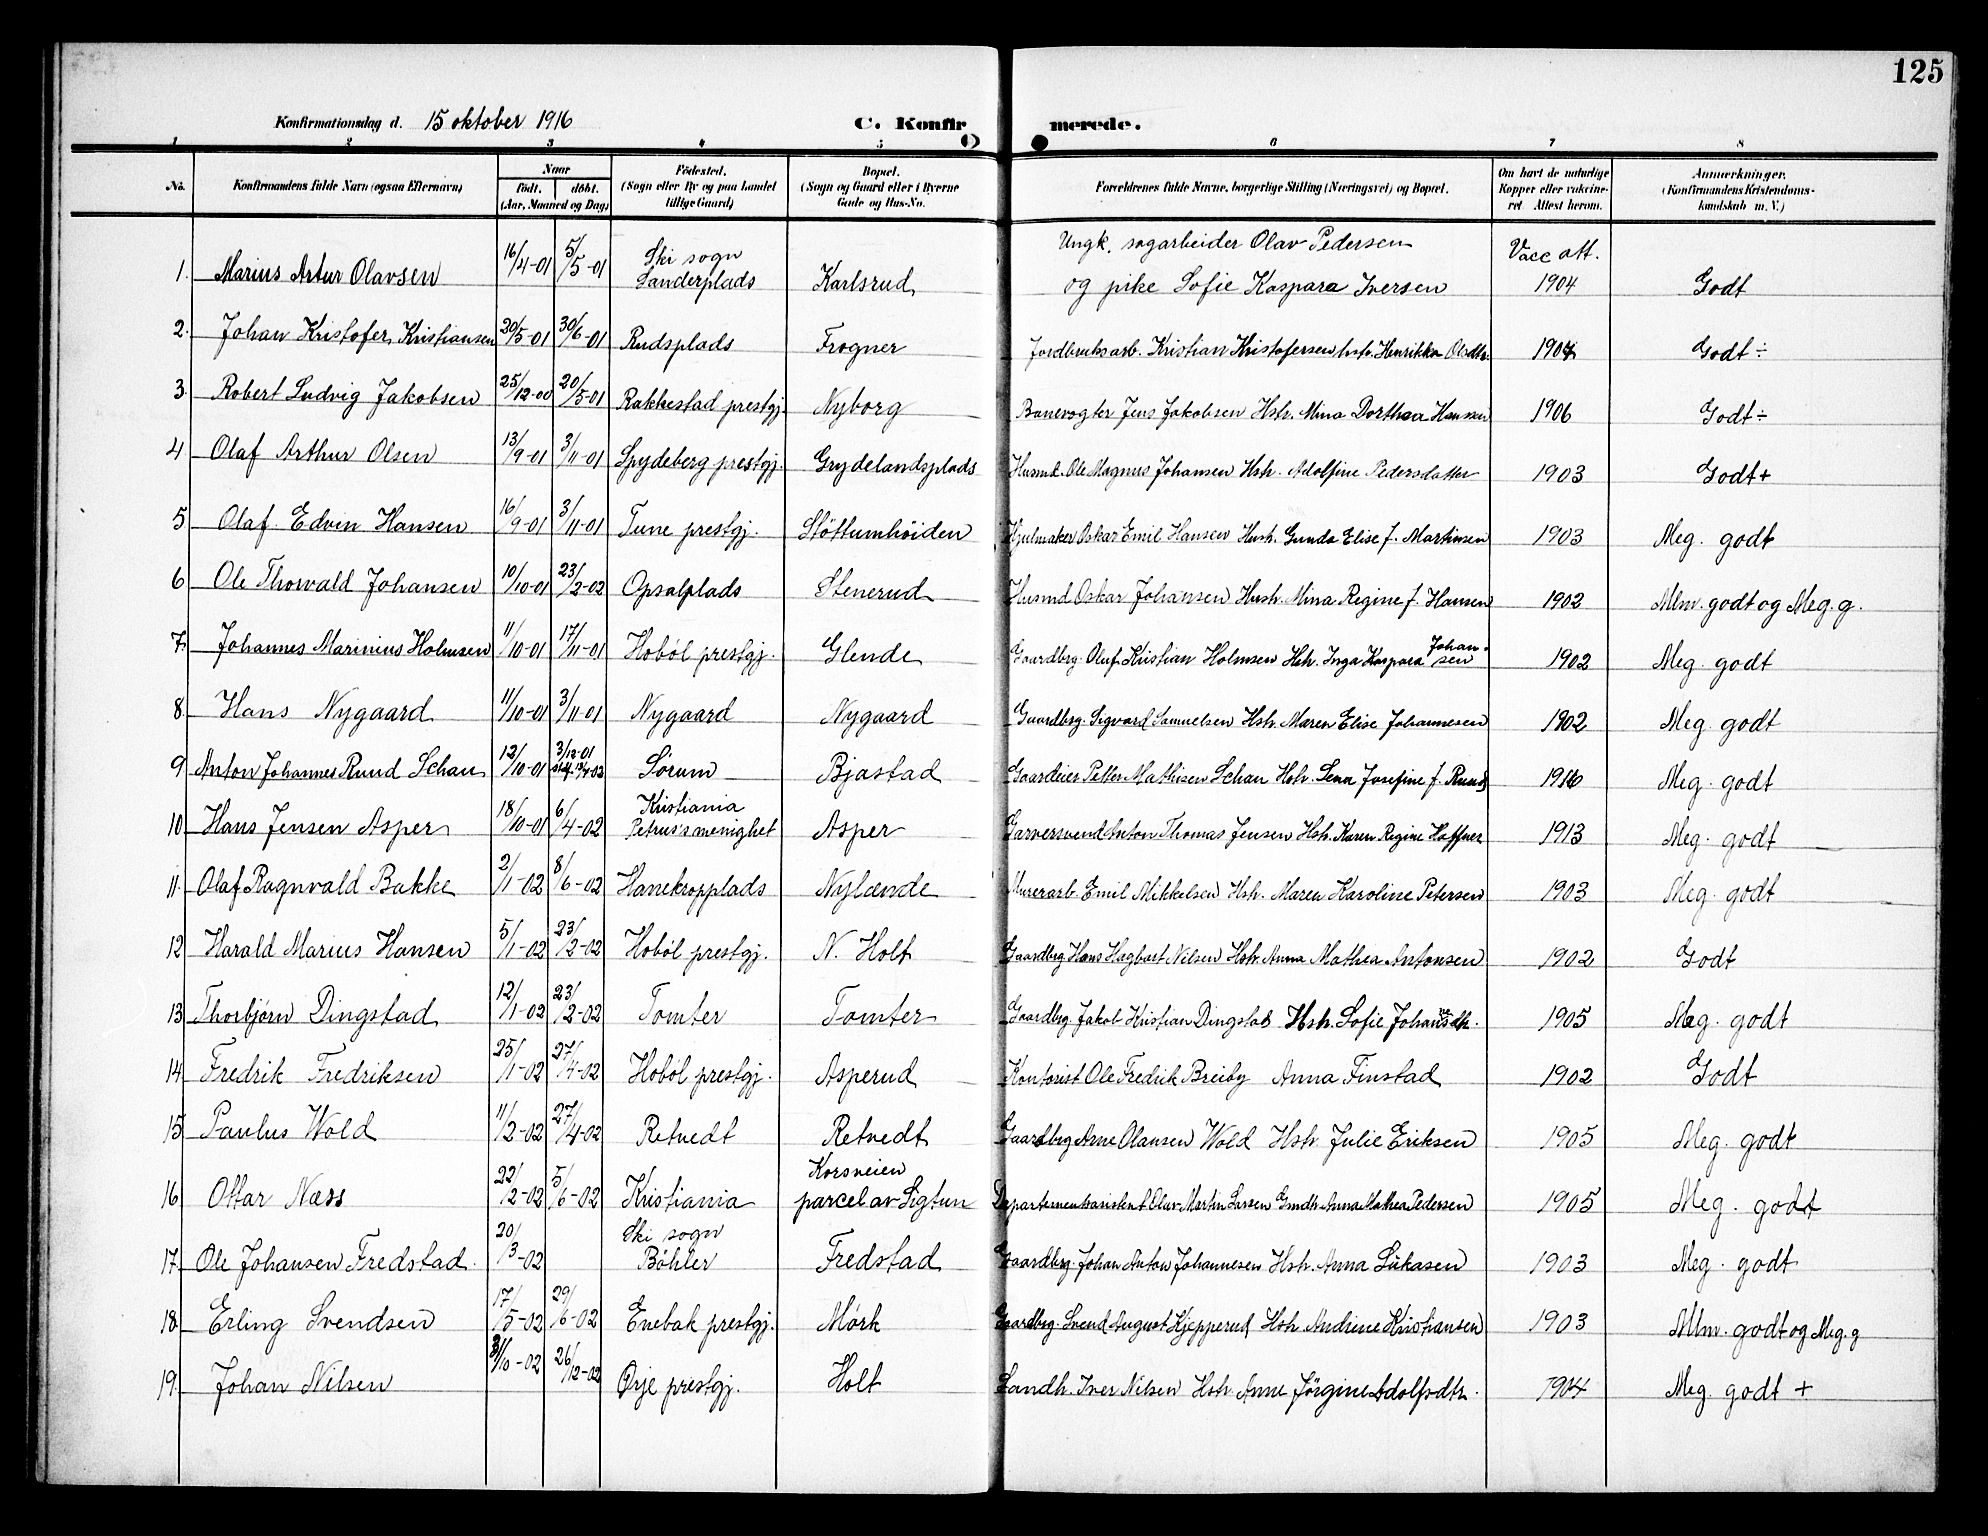 125
Konfirmationsdag d. 15 oktober 1916 C. Konfirmerede.
1 2 3 4 5 6 7 8
No. Konfirmandens fulde Navn (ogsaa Efternavn) Naar født. døbt. (Aar, Maaned og Dag) Fødested. (Sogn eller By og paa Landet tillige Gaard) Bopæl. (Sogn og Gaard eller i Byerne Gade og Hus-No. Forældrenes fulde Navne, borgerlige Stilling (Næringsvei) og Bopæl. Om havt de naturlige Kopper eller vaccineret. Attest herom. Anmærkninger. (Konfirmandens Kristendomskundskab m. V.)
1. Marius Artur Olavsen 16/4-01 5/5-01 Ski sogn Sanderplads Karlsrud Ungk. sagarbeider Olav Pedersen og pike Sofie Kaspara Iversen Vacc att. 1904 Godt
2. Johan Kristofer Kristiansen 20/5-01 30/6-01 Rudsplads Frogner Jordbruksarb. Kristian Kristofersen hstr. Henrikka Olsdtr. 1904 Godt ÷
3. Robert Ludvig Jakobsen 25/12-00 20/5-01 Rakkestad prestgj. Nyborg Banevogter Jens Jakobsen Hstr. Mina Dorthea Hansen 1906 Godt ÷
4 Olaf Arthur Olsen 13/9-01 3/11-01 Spydeberg prestgj. Grydelandsplads Husmd. Ole Magnus Johansen Hstr. Adolfine Pedersdatter 1903 Godt +
5 Olaf Edvin Hansen 16/9-01 3/11-01 Tune prestgj. Slöttumhöiden Hjulmaker Oskar Emil Hansen Hustr. Gunda Elise f. Martinsen 1903 Meg. godt
6 Ole Thorvald Johansen 10/10-01 23/2-02 Opsalplads Stenerud Husmd Oskar Johansen Hustr. Mina Regine f. Hansen 1902 Mlm. godt og Meg. g.
7. Johannes Marinius Holmsen 11/10-01 17/11-01 Hoböl prestgj. Glende Gaardbrg. Oluf Kristian Holmsen Hstr. Inga Kaspara Johansen 1902 Meg. godt
8. Hans Nygaard 11/10-01 3/11-01 Nygaard Nygaard Gaardbrg. Sigvard Samuelsen Hstr. Maren Elise Johannesen 1902 Meg. godt
9 Anton Johannes Ruud Schau 12/10-01 3/12-01 Sörum Bjastad Gaardeier Petter Mathisen Schau Hstr. Lena Josefine f. Ruud 1916 Meg. godt
10 Hans Jensen Asper 18/10-01 6/4-02 Kristiania Petrus's menighet Asper Garversvend Anton Thomas Jensen Hstr. Karen Regine Haffner 1913 Meg. godt
11. Olaf Ragnvald Bakke 2/1-02 8/6-02 Hanekropplads Nylænde Murerarb. Emil Mikkelsen Hstr. Maren Karoline Petersen 1903 Meg. godt
12 Harald Marius Hansen 5/1-02 23/2-02 Hoböl prestgj. N. Holt Gaardbrg Hans Hagbart Nilsen Hstr. Anna Mathea Antonsen 1902 Godt
13 Thorbjørn Dingstad 12/1-02 23/2-02 Tomter Tomter Gaardbrg. Jakob Kristian Dingstad Hstr. Sofie Johansdtr. 1905 Meg. godt
14 Fredrik Fredriksen 25/1-02 27/4-02 Hoböl prestgj. Asperud Kontorist Ole Fredrik Breiby Anna Finstad 1902 Godt
15 Paulus Wold 11/2-02 27/4-02 Retvedt Retvedt Gaardbrg Arne Olausen Wold Hstr. Julie Eriksen 1905 Meg. godt
16 Ottar Næss 22/2-02 5/6-02 Kristiania Korsveien parcel av Sigtun Departementsasistent Olav Martin Larsen Anna Mathea Pedersen 1905 Meg. godt
17. Ole Johansen Fredstad 20/3-02 Ski sogn Böhler Fredstad Gaardbrg. Johan Anton Johannesen Hstr. Anna Lükasen 1903 Meg. godt
18 Erling Svendsen 17/5-02 29/6-02 Enebak prestgj. Mørk Gaardbrg. Svend August Kjepperud Hstr. Andrine Kristiansen 1903 Mlm. godt og Meg. g
19. Johan Nilsen 31/10-02 26/12-02 Ørje prestgj. Holt Landh. Iver Nilsen Hstr. Anne Jörgine Adolfsdtr. 1904 Meg. godt +